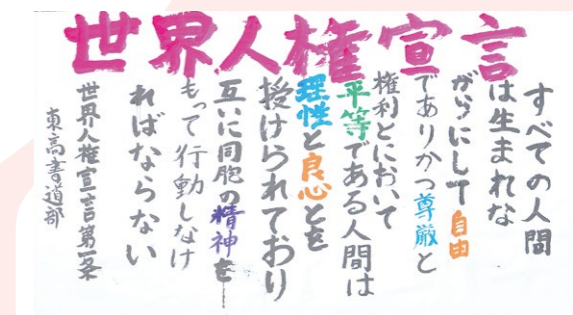 世界人権宣言
すべての人間
は生まれな
がらにして自由
でありかつ尊厳と
権利とにおいて
平等である人間は
理性と良心とを
授けられており
互いに同胞の精神を
もって行動しなけ
ればならない
世界人権宣言第一条
東高書道部